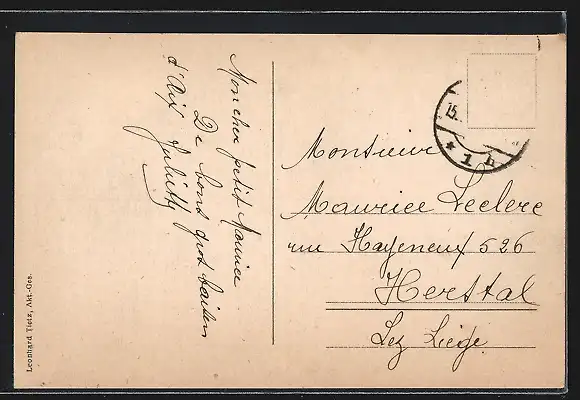 Mon cher petit Maurice
De bons gros baisers
d'Aix Juliette
Monsieur
Maurice Leclerc
rue Hayeneux 526
Herstal
Lez Liége
15.
* 1 h
Leonhard Tietz, Akt.-Ges.